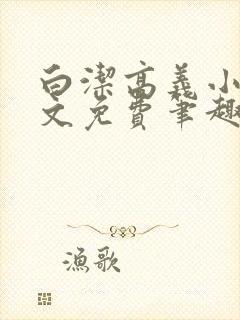 白潔高義小
文免費筆趣
漁歌